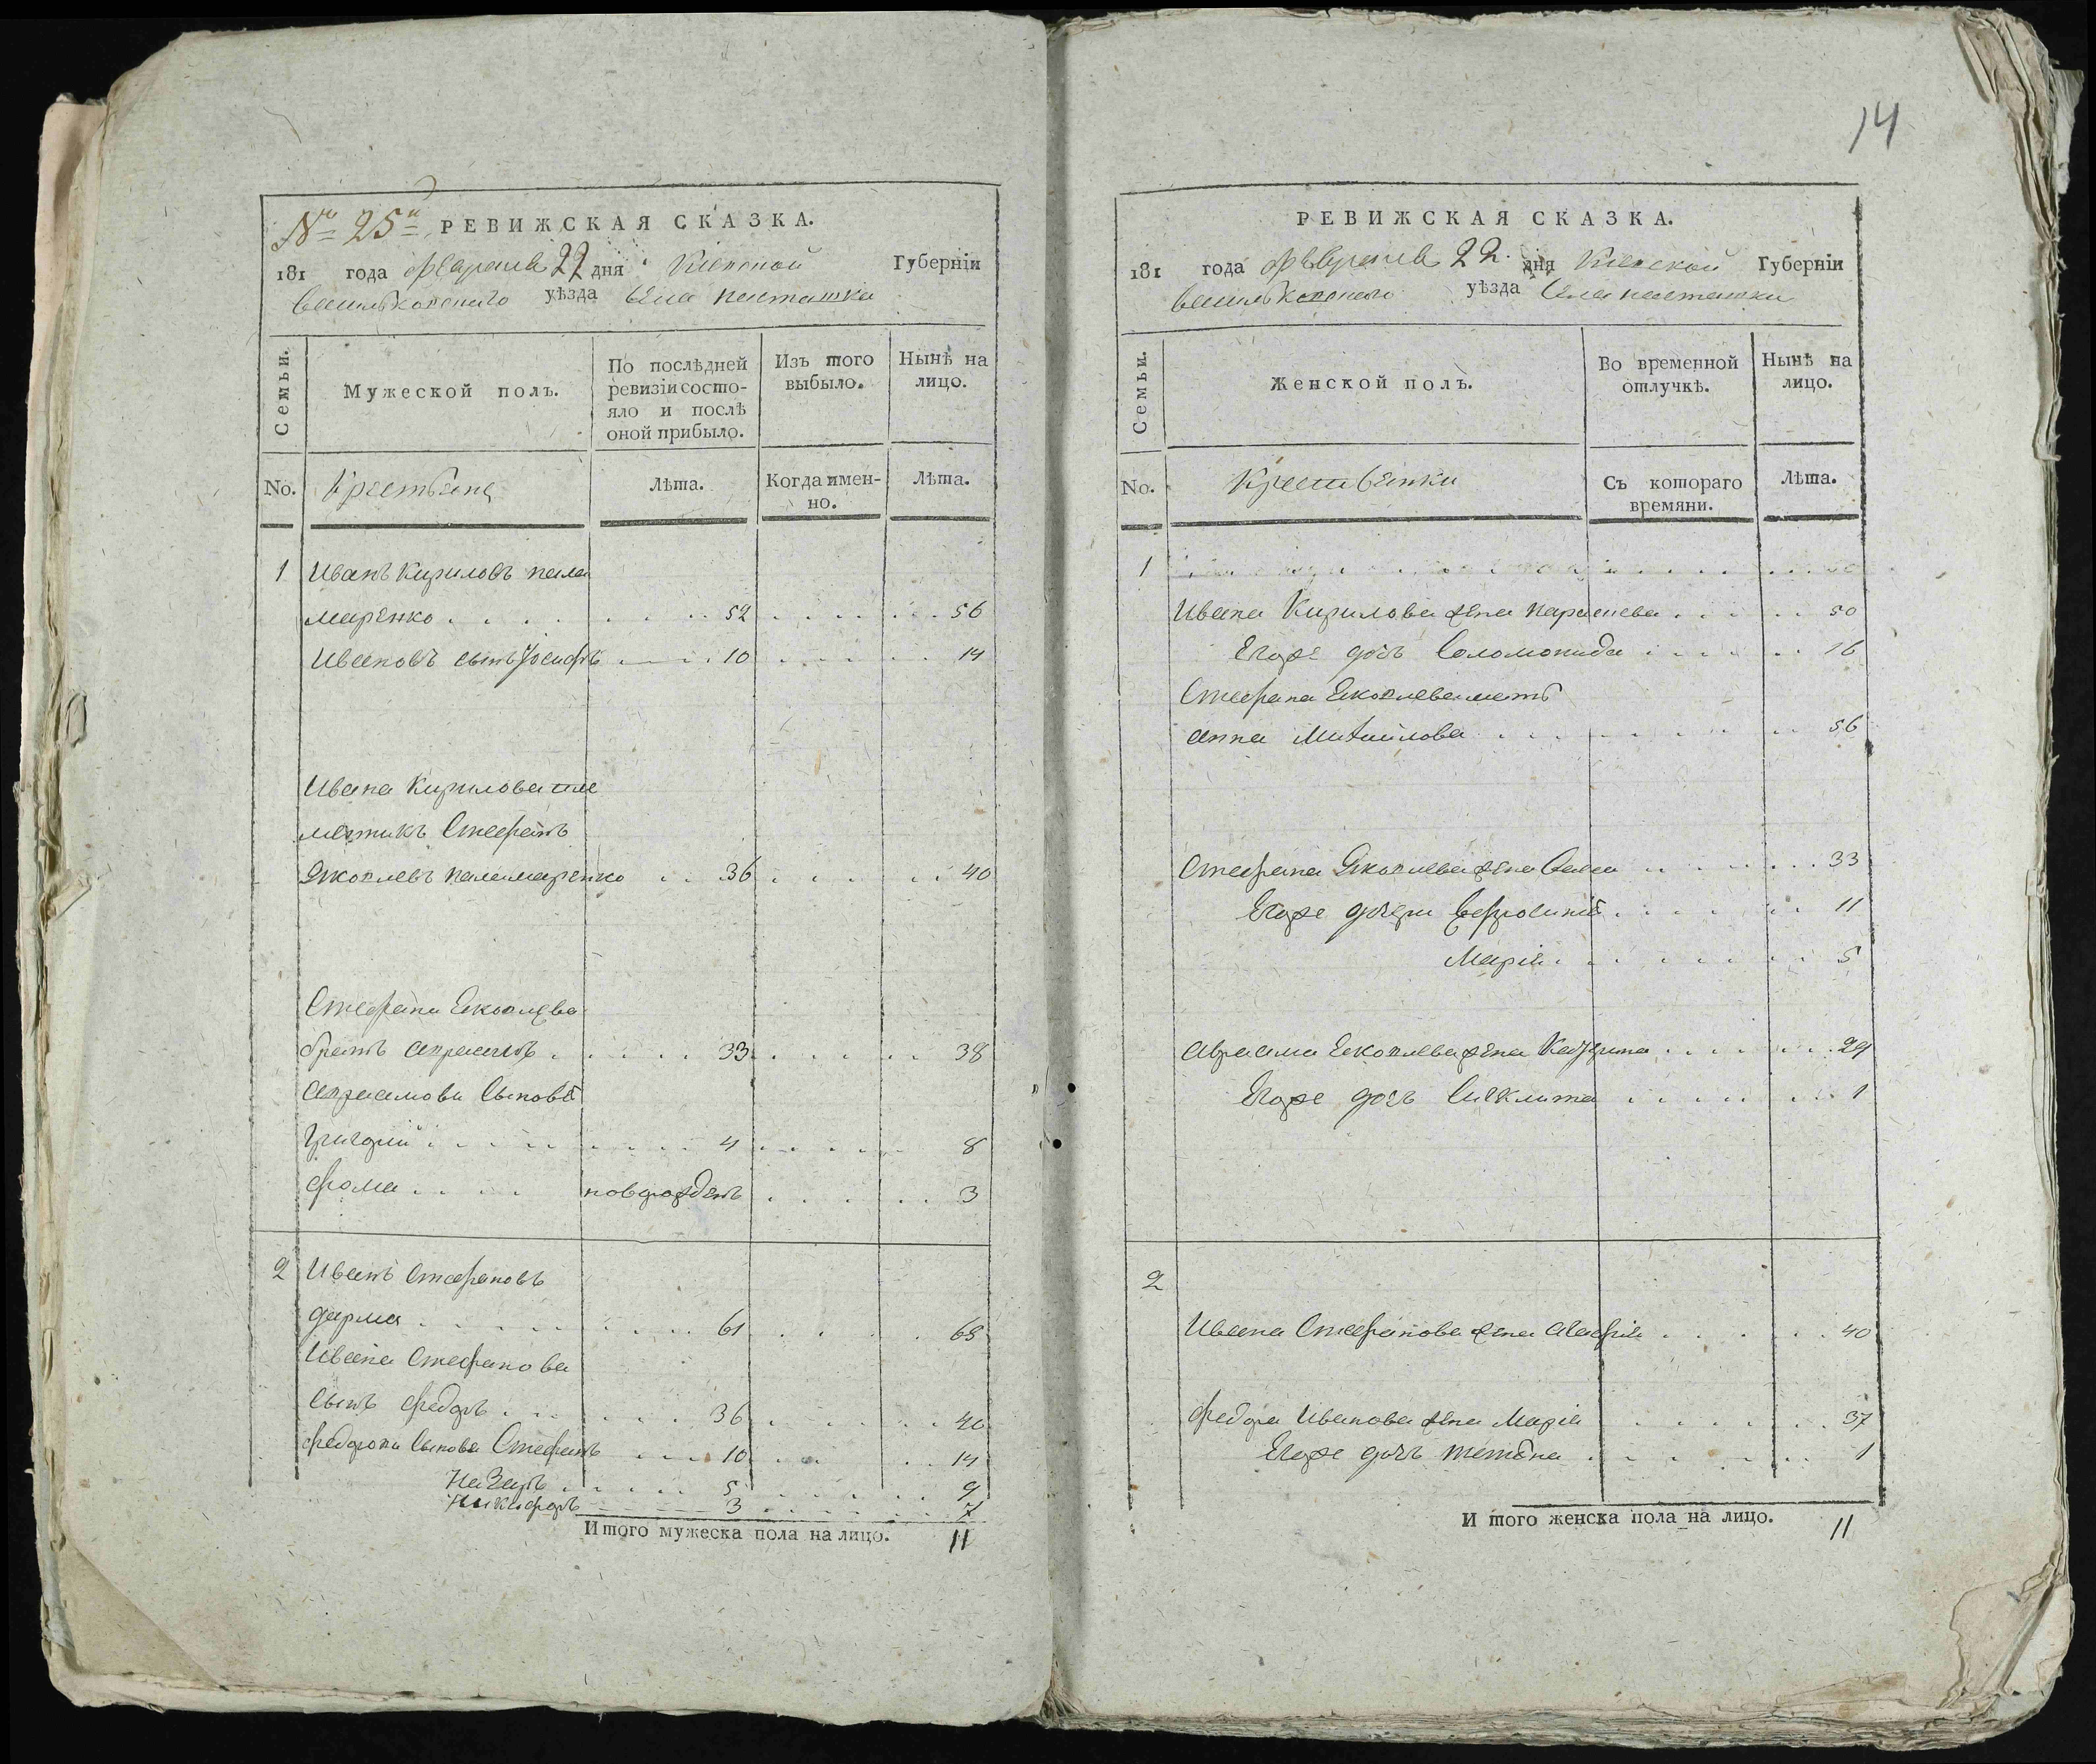 14
№ 25й РЕВИЖСКАЯ СКАЗКА.
181 года Февраля 22 дня Кіевской Губерніи
Васильковского уѣзда Села
Семьи.
Мужеской полъ.
По послѣдней ревизіи состояло и послѣ оной прибыло.
Изъ того выбыло.
Нынѣ на лицо.
No. Крестьяне Лѣта. Когда именно. Лѣта.
1 Иванъ Кириловъ пала
маренко . . . . 52 . . . . 56
Ивановъ сынъ Іосифъ . . . 10 . . . . 14
Ивана Кирилова пле
мяникъ Стефанъ
Яковлевъ паламаренко . . 36 . . . . 40
Стефана Яковлева
братъ Авраамъ . . . . 33 . . . . 38
Авраамовы Сыновѣ
Григорій . . . . 4 . . . . 8
Фома . . . . новорожденъ . . . . 3
2 Иванъ Стефановъ
. . . . 61 . . . . 65
Ивана Стефанова
Сынъ Федоръ . . . . 36 . . . . 40
Федоровы Сыновѣ Стефанъ . . . 10 . . . . 14
Назаръ . . . . 5 . . . . 9
Никифоръ 3 . . . . 7
Итого мужеска пола на лицо. 11
РЕВИЖСКАЯ СКАЗКА.
181 года Февраля 22 дня Кіевской Губерніи
Васильковского уѣзда Села
Семьи.
Женской полъ.
Во временной отлучкѣ.
Нынѣ на лицо.
No. Крестьянки Съ котораго времяни. Лѣта.
1
Ивана Кирилова жена . . . . 50
Егоже дочь Соломонида . . . . 16
Стефана Яковлева мать
Анна Михайлова . . . . 56
Стефана Яковлева жена . . . . 33
Егоже дочери Ефросинія . . . . 11
Марія . . . . 5
Авраама Яковлева жена Катерина . . . . 29
Егоже дочь . . . . 1
2
Ивана Стефанова жена Агафія . . . . 40
Федора Иванова жена Марія . . . . 37
Егоже дочь Татіяна . . . . 1
И того женска пола на лицо. 11